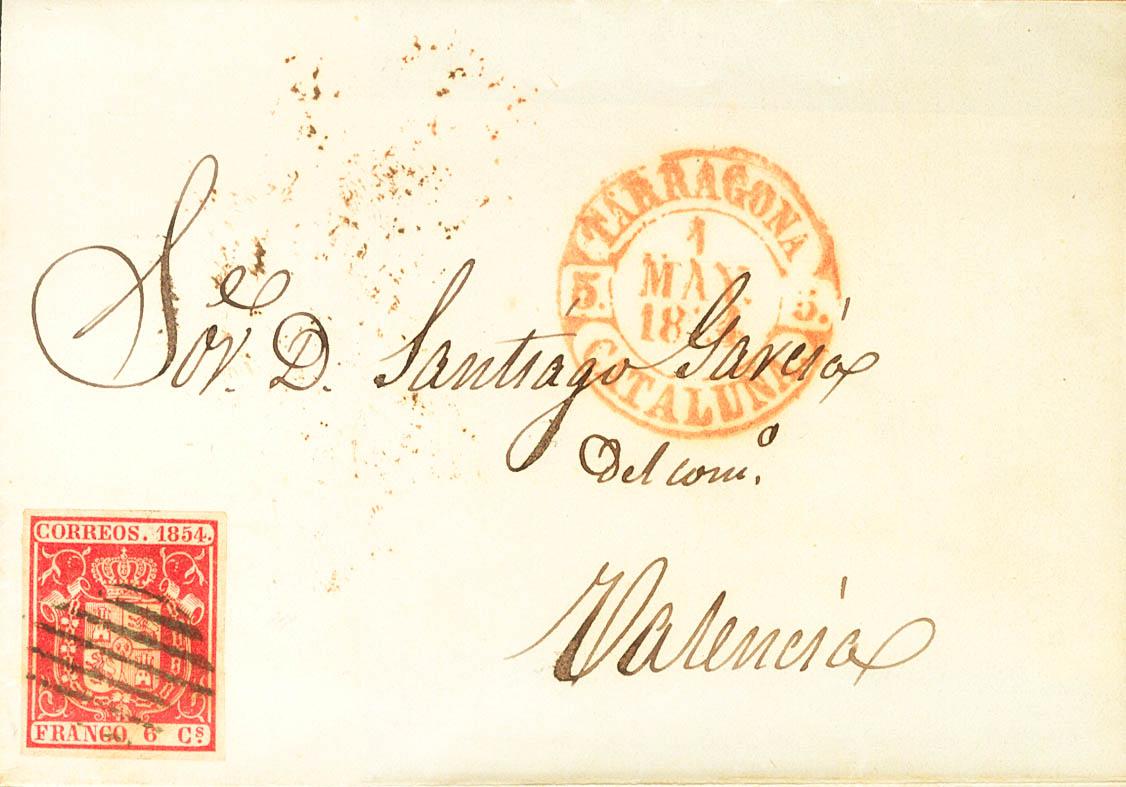 TARRAGONA
1
MAY.
5. 5.
CATALUÑA
Sor. D. Santiago García
del como.
CORREOS. 1854.
Valencia
FRANCO, 6 Cs